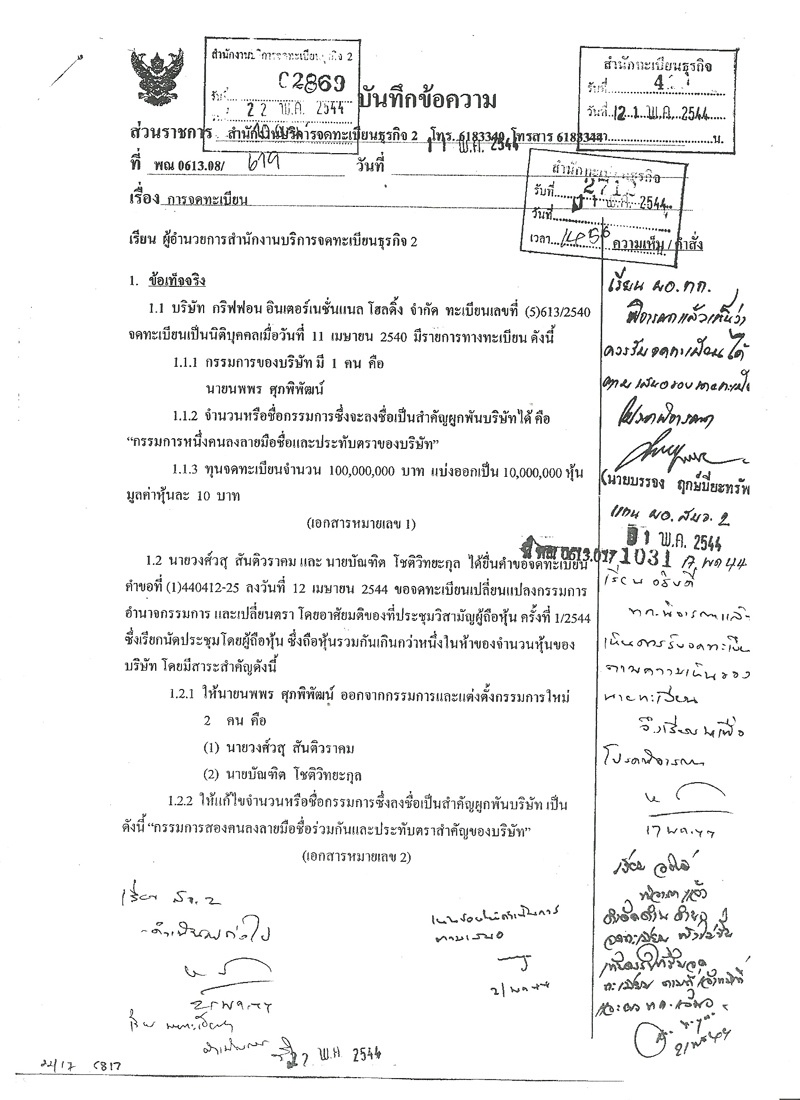 สำนักงานบริการจดทะเบียนธุรกิจ 2
02869
22 พ.ค. 2544
สำนักทะเบียนธุรกิจ
รับที่
วันที่ 21 พ.ค. 2544
น.
บันทึกข้อความ
ส่วนราชการ สำนักงานบริการจดทะเบียนธุรกิจ 2 โทร. 6183340, โทรสาร
ที่ พณ 0613.08/ 619 วันที่ 11 พ.ค. 2544
สำนักทะเบียนธุรกิจ
รับที่
วันที่ พ.ค. 2544
เวลา
เรื่อง การจดทะเบียน
เรียน ผู้อำนวยการสำนักงานบริการจดทะเบียนธุรกิจ 2
ความเห็น / คำสั่ง
1. ข้อเท็จจริง
1.1 บริษัท กริฟฟอน อินเตอร์เนชั่นแนล โฮลดิ้ง จำกัด ทะเบียนเลขที่ (5)613/2540
จดทะเบียนเป็นนิติบุคคลเมื่อวันที่ 11 เมษายน 2540 มีรายการทางทะเบียน ดังนี้
1.1.1 กรรมการของบริษัท มี 1 คน คือ
นายนพพร ศุภพิพัฒน์
1.1.2 จำนวนหรือชื่อกรรมการซึ่งจะลงชื่อเป็นสำคัญผูกพันบริษัทได้ คือ
“กรรมการหนึ่งคนลงลายมือชื่อและประทับตราของบริษัท”
1.1.3 ทุนจดทะเบียนจำนวน 100,000,000 บาท แบ่งออกเป็น 10,000,000 หุ้น
มูลค่าหุ้นละ 10 บาท
(เอกสารหมายเลข 1)
1.2 นายวงศ์วสุ สันติวราคม และ นายบัณฑิต โชติวิทยะกุล ได้ยื่นคำขอจดทะเบียน
คำขอที่ (1)440412-25 ลงวันที่ 12 เมษายน 2544 ขอจดทะเบียนเปลี่ยนแปลงกรรมการ
อำนาจกรรมการ และเปลี่ยนตรา โดยอาศัยมติของที่ประชุมวิสามัญผู้ถือหุ้น ครั้งที่ 1/2544
ซึ่งเรียกนัดประชุมโดยผู้ถือหุ้น ซึ่งถือหุ้นรวมกันเกินกว่าหนึ่งในห้าของจำนวนหุ้นของ
บริษัท โดยมีสาระสำคัญดังนี้
1.2.1 ให้นายนพพร ศุภพิพัฒน์ ออกจากกรรมการและแต่งตั้งกรรมการใหม่
2 คน คือ
(1) นายวงศ์วสุ สันติวราคม
(2) นายบัณฑิต โชติวิทยะกุล
1.2.2 ให้แก้ไขจำนวนหรือชื่อกรรมการซึ่งลงชื่อเป็นสำคัญผูกพันบริษัท เป็น
ดังนี้ “กรรมการสองคนลงลายมือชื่อร่วมกันและประทับตราสำคัญของบริษัท”
(เอกสารหมายเลข 2)
เรียน ผอ.ทก.
พิจารณาแล้วเห็นว่า
ควรรับจดทะเบียนได้
ตามเสนอของนายทะเบียน
โปรดพิจารณา
(นายบรรจง ฤกษ์บียะทรัพ
แทน ผอ.สบจ. 2
พ.ค. 2544
ที่ พณ 0613.01/ 1031
เรียน อธิบดี
ทก. พิจารณาแล้ว
เห็นควรรับจดทะเบียน
ตามความเห็นของ
นายทะเบียน
จึงเรียนมาเพื่อ
โปรดพิจารณา
17 พค 44
เรียน สจ. 2
- ดำเนินการต่อไป
21 พค 44
ดำเนินการ
พ.ค. 2544
ตามเสนอ
21 พค 44